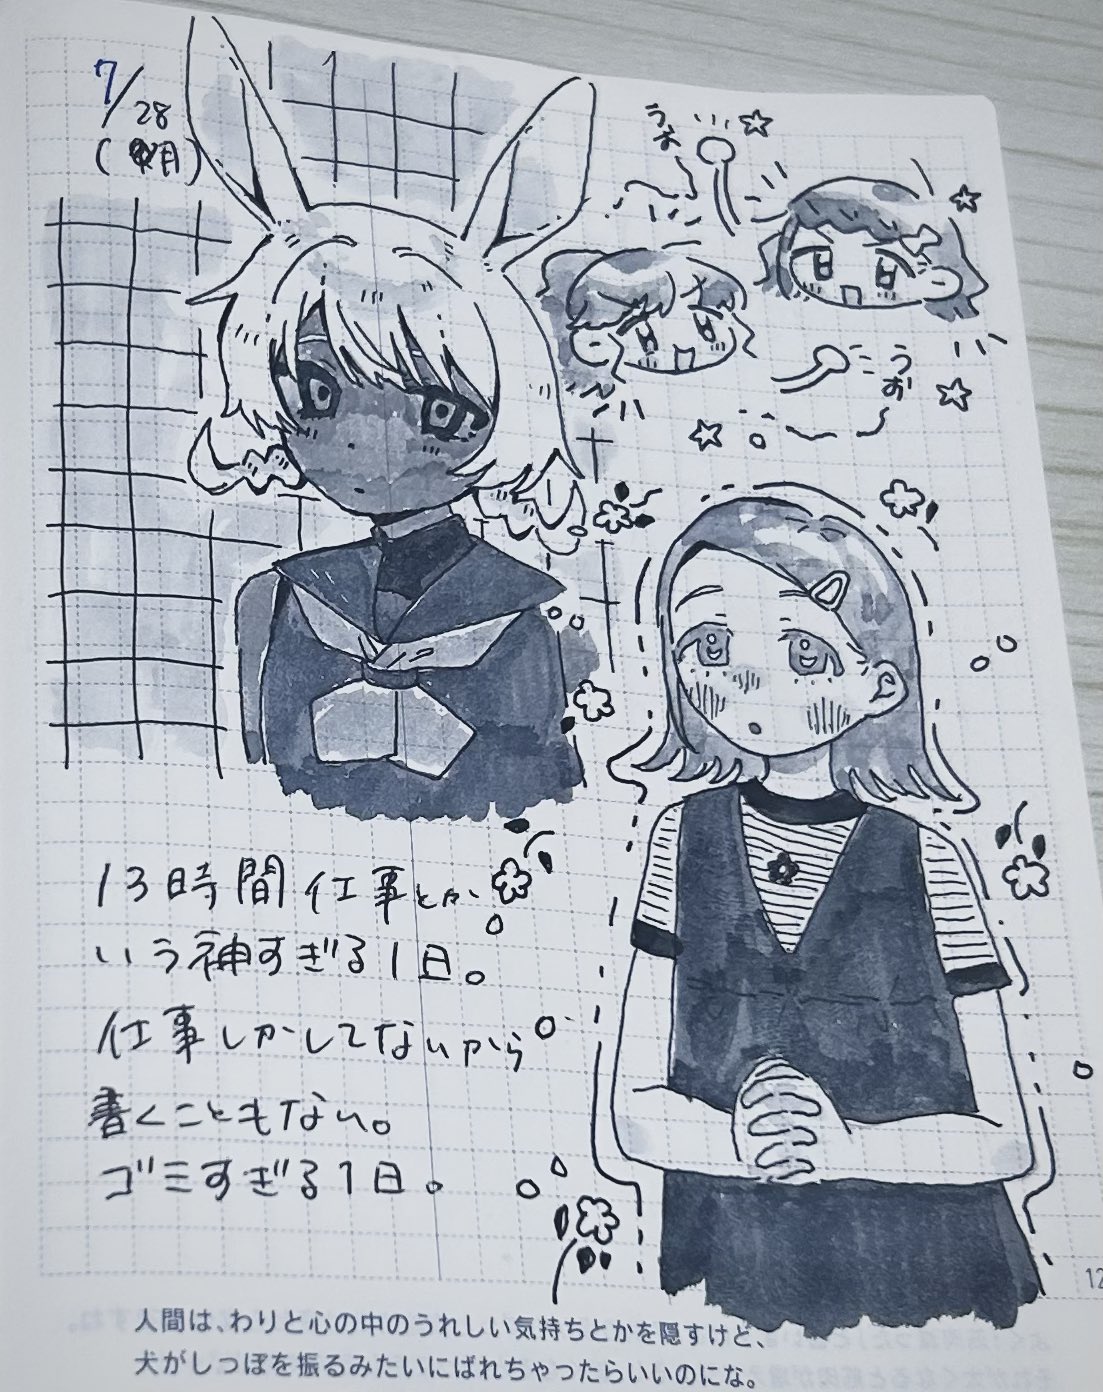 7/28
(月)
うお
うお
13時間仕事とか
いう神すぎる1日。
仕事しかしてないから
書くこともない。
ゴミすぎる1日。
12
人間は、わりと心の中のうれしい気持ちとかを隠すけど、
犬がしっぽを振るみたいにばれちゃったらいいのにな。